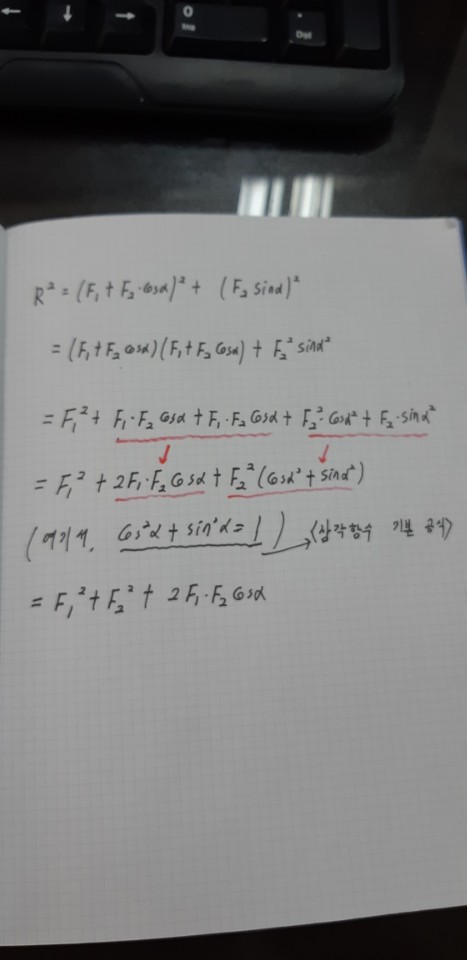 ← ↓ → 0 Ins . Del
R² = (F₁ + F₂·cosα)² + (F₂ sinα)²
= (F₁ + F₂ cosα)(F₁ + F₂ cosα) + F₂² sinα²
= F₁² + F₁·F₂ cosα + F₁·F₂ cosα + F₂²·cosα² + F₂·sinα²
= F₁² + 2F₁·F₂ cosα + F₂² (cosα² + sinα²)
(여기서, cos²α + sin²α = 1) → <삼각함수 기본 공식>
= F₁² + F₂² + 2F₁·F₂ cosα